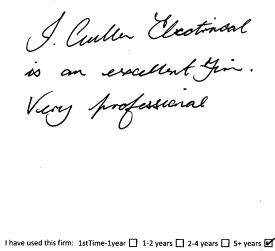 J. Cullen Electrical
is an excellent firm.
Very professional
I have used this firm: 1stTime-1year ☐ 1-2 years ☐ 2-4 years ☐ 5+ years ☑